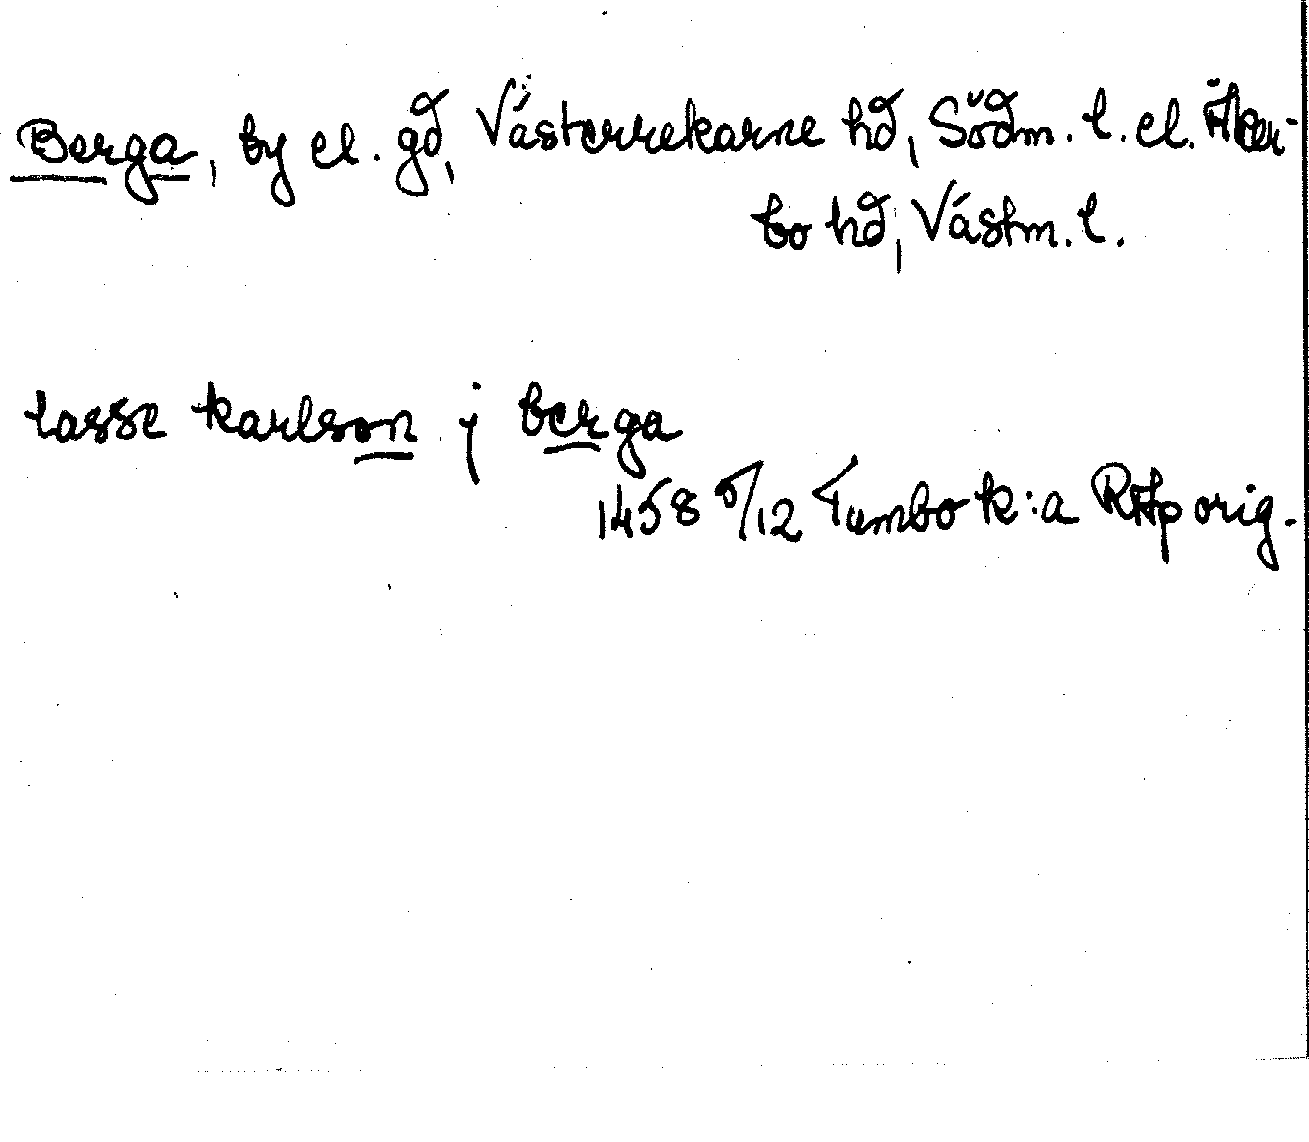 Berga, by el. gd, Västerrekarne hd, Södm. l. el. Åker-
bo hd, Västm. l.
lasse karlson j berga
1458 5/12 Tumbo k:a RAp orig.